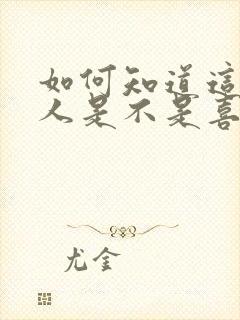 如何知道這
人是不是喜
尤金